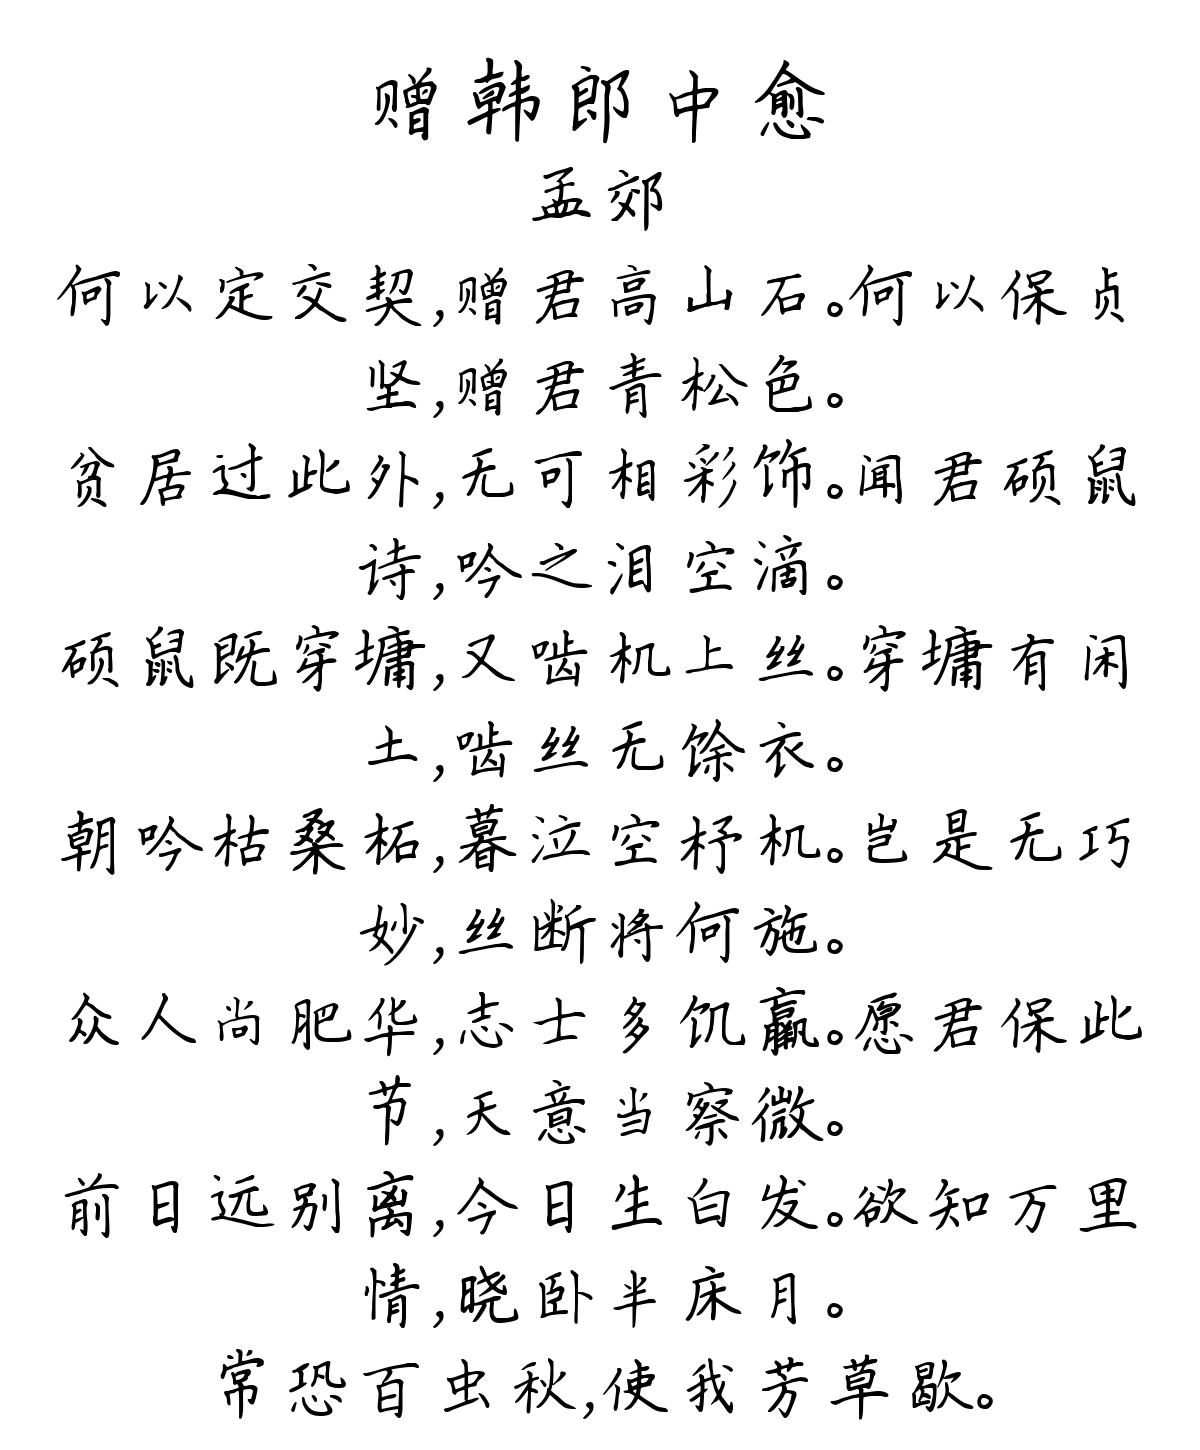 赠韩郎中愈
孟郊
何以定交契,赠君高山石。何以保贞
坚,赠君青松色。
贫居过此外,无可相彩饰。闻君硕鼠
诗,吟之泪空滴。
硕鼠既穿墉,又啮机上丝。穿墉有闲
土,啮丝无馀衣。
朝吟枯桑柘,暮泣空杼机。岂是无巧
妙,丝断将何施。
众人尚肥华,志士多饥羸。愿君保此
节,天意当察微。
前日远别离,今日生白发。欲知万里
情,晓卧半床月。
常恐百虫秋,使我芳草歇。